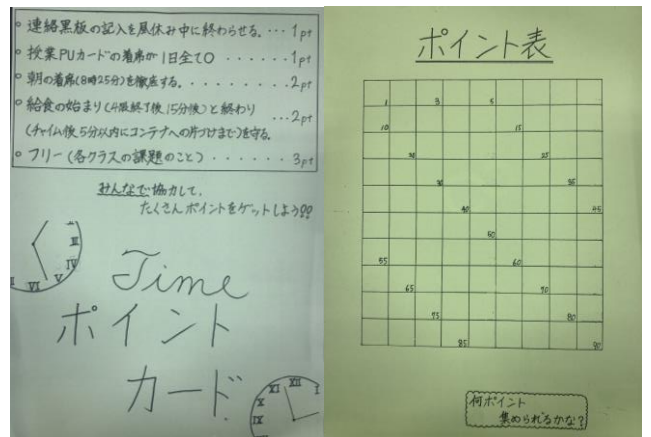 ○ 連絡黒板の記入を昼休み中に終わらせる。…1pt
○ 授業PUカードの着席が1日全て○ ‥‥‥1pt
○ 朝の着席(8時25分)を徹底する。‥‥‥2pt
○ 給食の始まり(4限終了後、15分後)と終わり
(チャイム後、5分以内にコンテナへの片づけまで)を守る。…2pt
○ フリー(各クラスの課題のこと)‥‥‥‥3pt
みんなで協力して、
たくさんポイントをゲットしよう??
II
III
IV
V
VI
Time
ポイント
カード
XI XII I
X
IX
ポイント表
1 3 5
10 15
20 25
30 35
40 45
50
55 60
65 70
75 80
85 90
何ポイント
集められるかな?